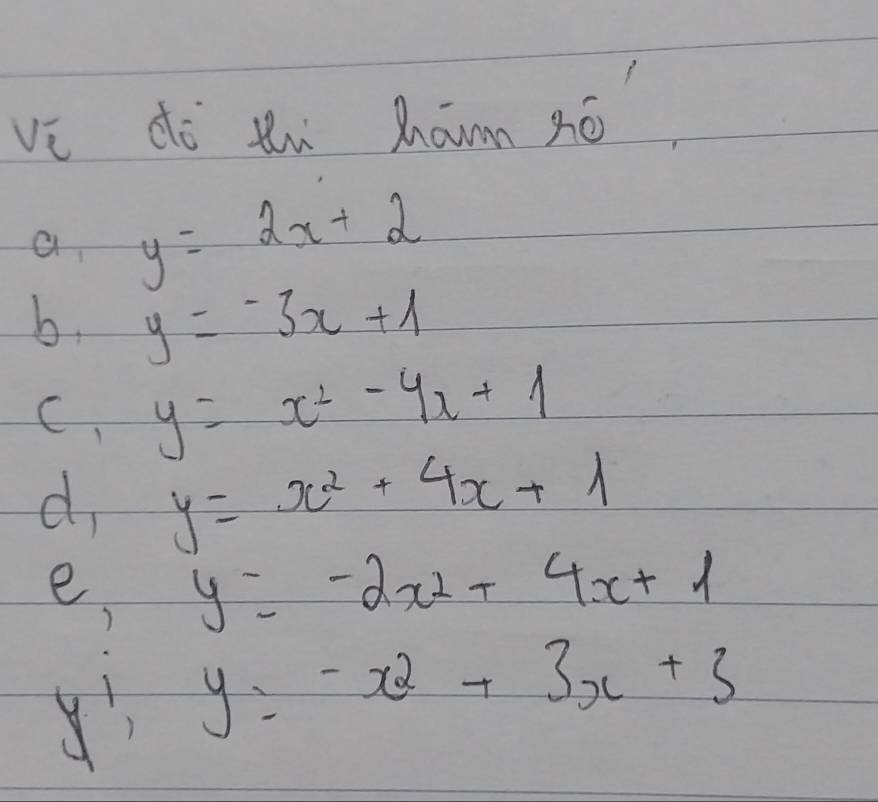 Vẽ đồ thị hàm số.
a, y = 2x + 2
b, y = -3x + 1
c, y = x² - 4x + 1
d, y = x² + 4x + 1
e, y = -2x² + 4x + 1
y = -x² + 3x + 3